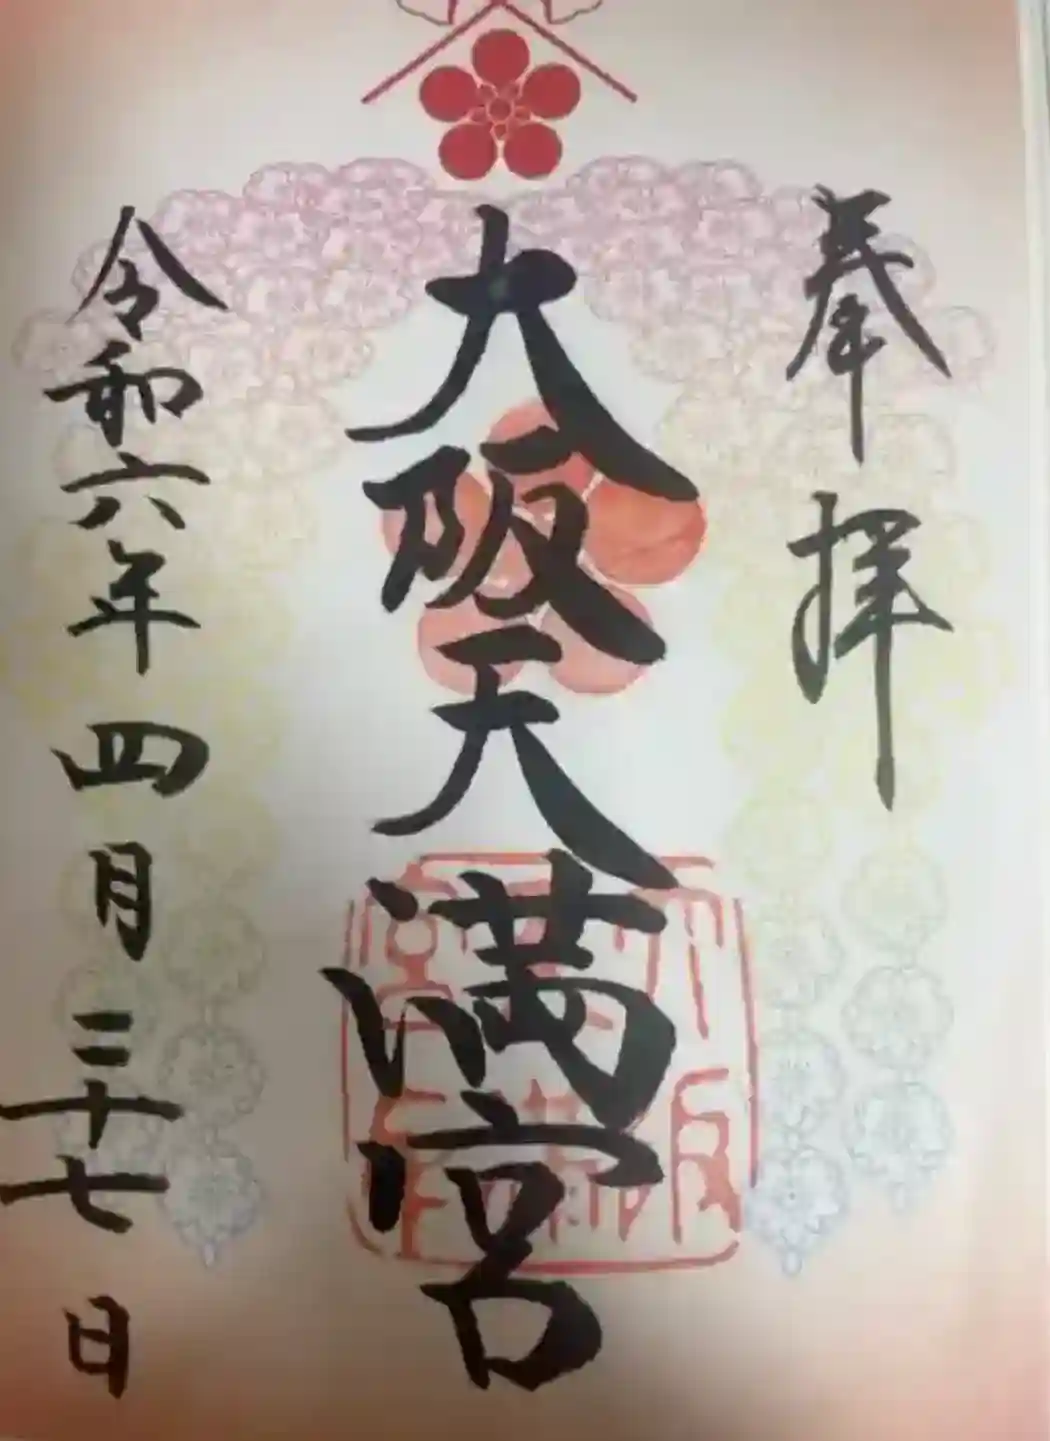 奉拝
大阪天満宮
令和六年四月二十七日